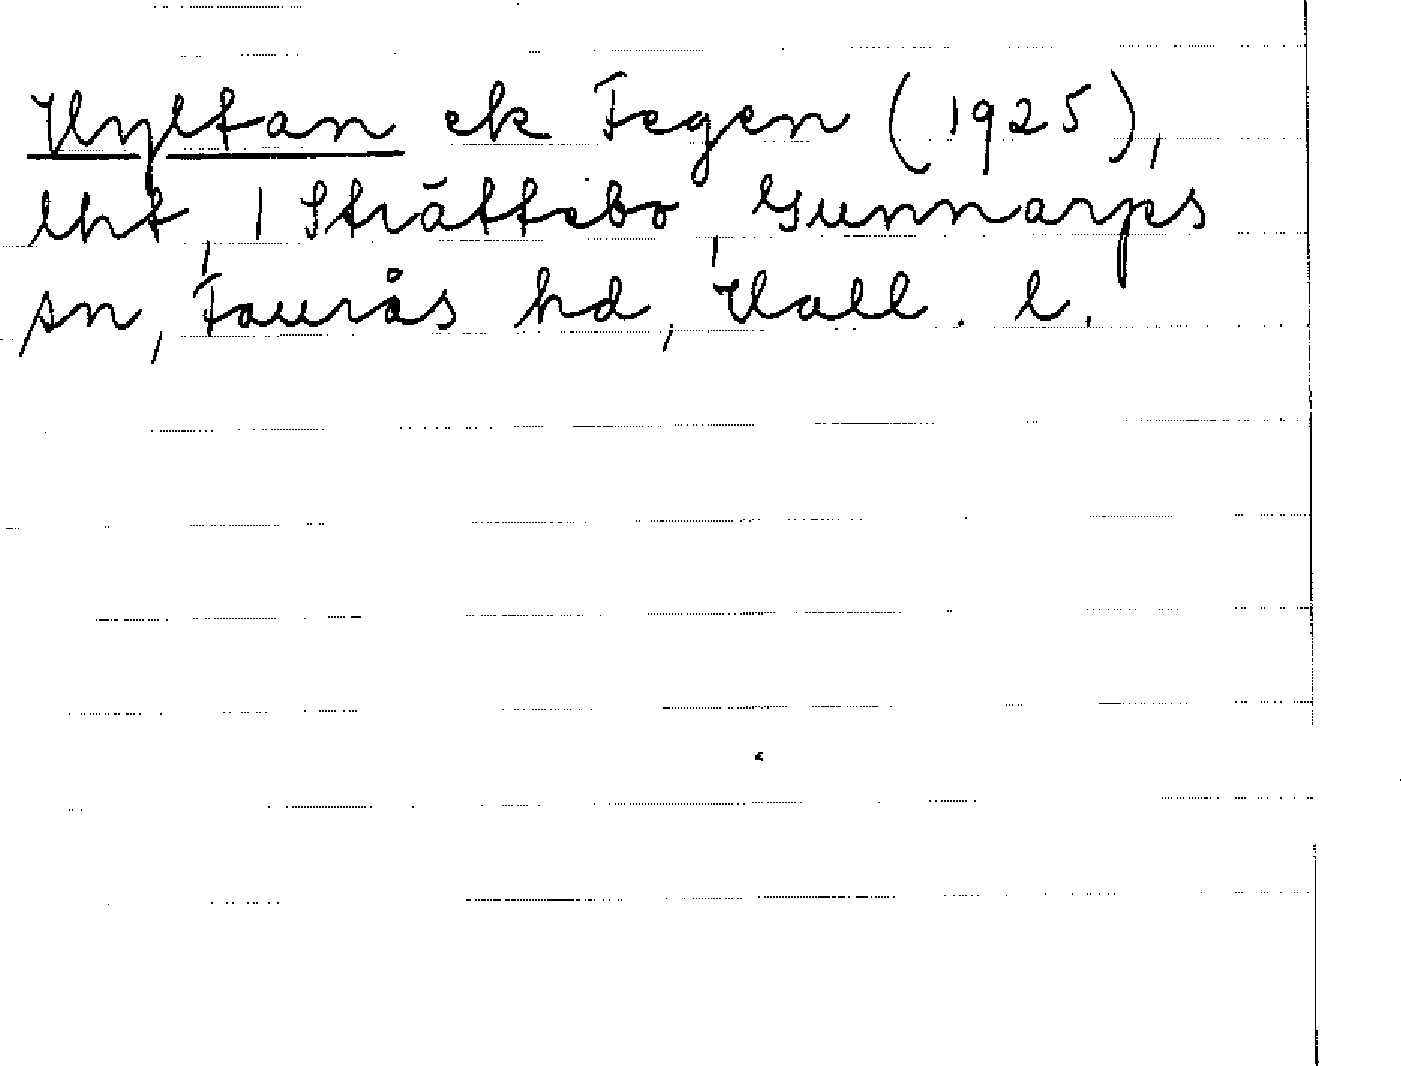 Hyltan ek Fegen (1925),
lht, 1 Strättebo, Gunnarps
sn, Faurås hd, Hall. l.